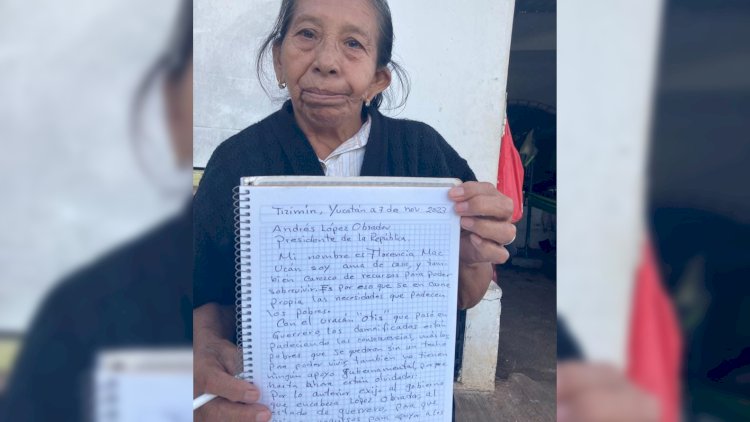 Tizimín, Yucatán a 7 de nov. 2023
Andrés López Obrador
Presidente de la República.
Mi nombre es Florencia Mac
Ucán soy ama de casa, y tam-
bien carezco de recursos para poder
sobrevivir. Es por eso que se en carne
propia las necesidades que padecen
los pobres.
Con el uracán "otis" que pasó en
Guerrero los damnificados están
padeciendo las consecuencias, más los
pobres que se quedaron sin un techo
Para poder vivir tambien no tienen
ningún apoyo gubernamental, porque
hasta ahora están olvidados.
Por lo anterior exijo al gobierno
que encabeza López Obrador, al
estado de guerrero, para que
para apoyar a los